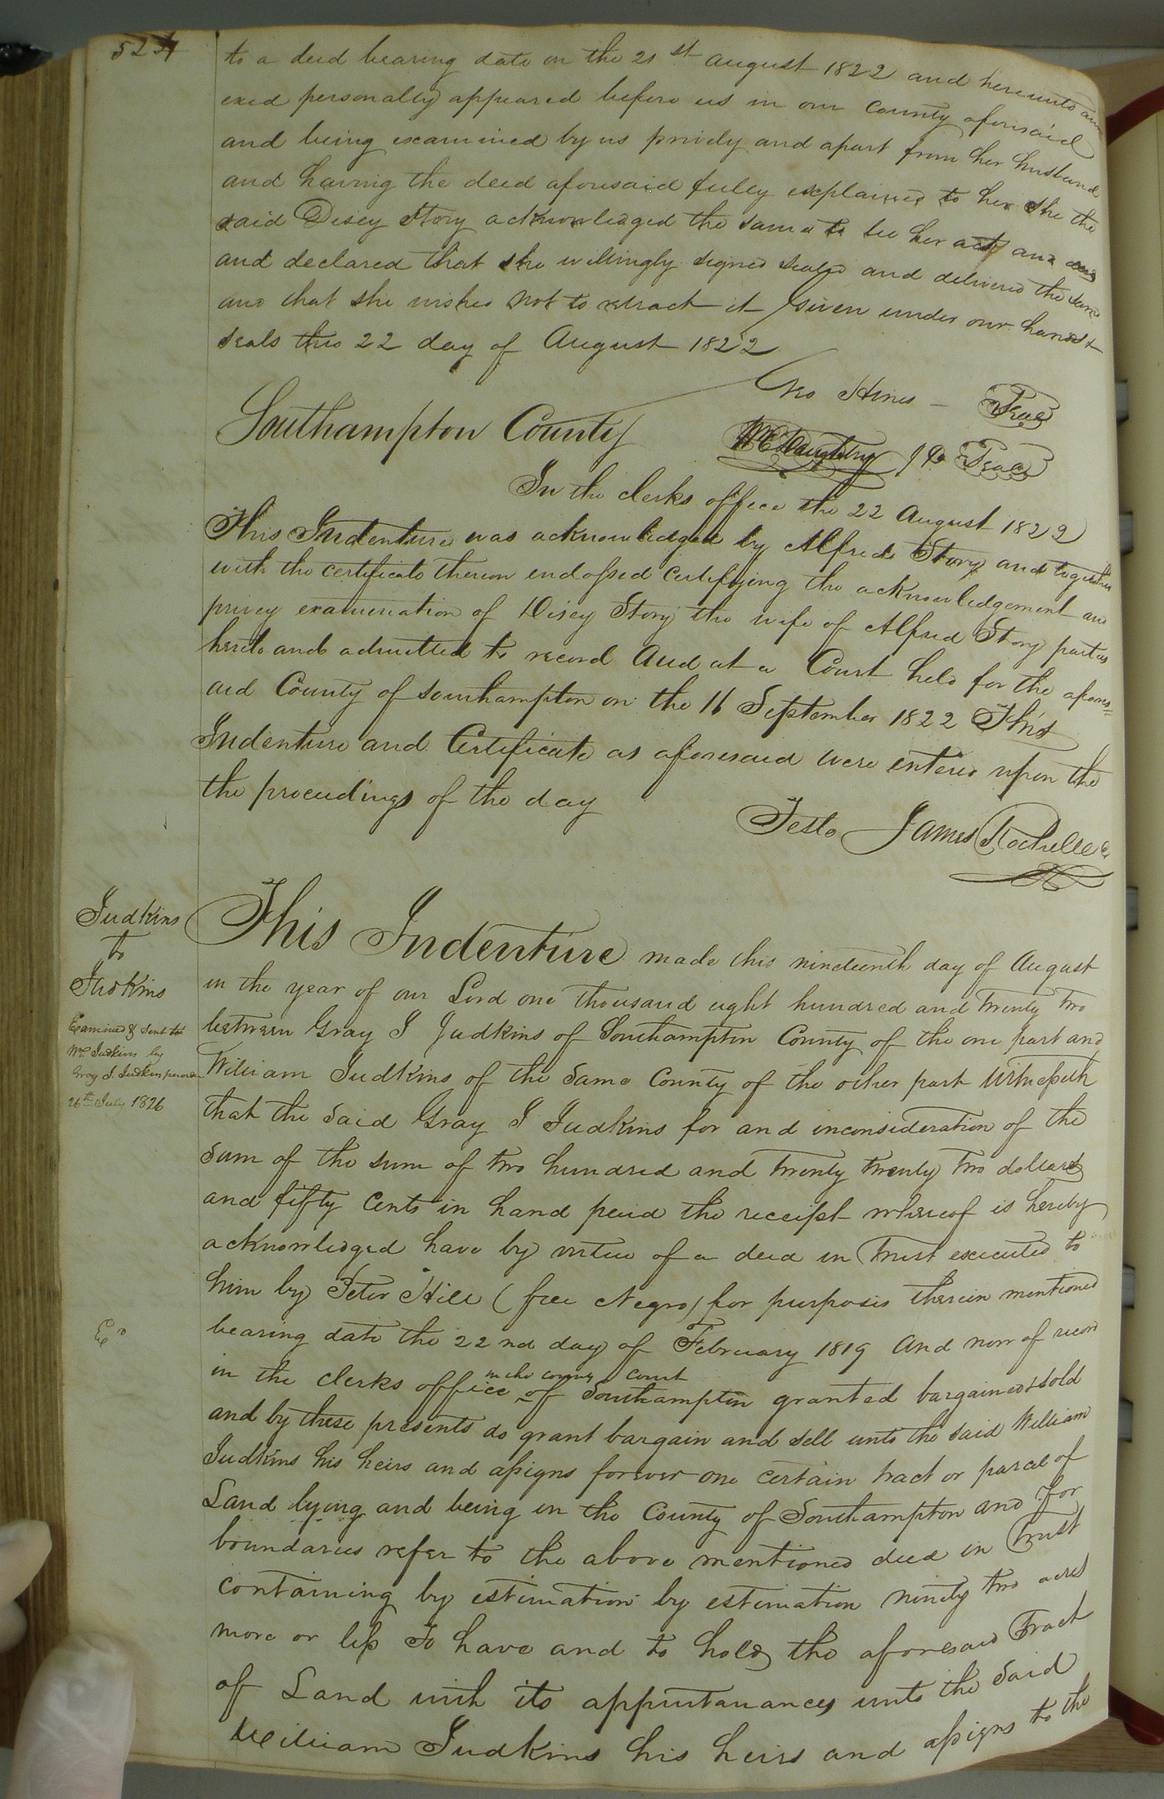 524
to a deed bearing date on the 21st August 1822 and hereunto ann
exed personally appeared before us in our County aforesaid
and being examined by us privily and apart from her husband
and having the deed aforesaid fully explained to her she the
said Disey Story acknowledged the same to be her act and deed
and declared that she willingly signed sealed and delivered the same
and that she wishes not to retract it Given under our hands &
seals this 22 day of August 1822
Jno Hines - Seal
Southampton County
Wm Daughtry J P Seal
In the clerks office the 22 August 1822
This Indenture was acknowledged by Alfred Story and together
with the certificate thereon endorsed certifying the acknowledgement and
privey examination of Disey Story the wife of Alfred Story parties
hereto and admitted to record And at a Court held for the afores=
aid County of Southampton on the 16 September 1822 This
Indenture and Certificate as aforesaid were entered upon the
the proceedings of the day
Teste James Rochelle C
Judkins
to
Judkins
Examined & sent to
Wm Judkins by
Gray J. Judkins
26th July 1826
This Indenture made this nineteenth day of August
in the year of our Lord one thousand eight hundred and twenty two
between Gray J Judkins of Southampton County of the one part and
William Judkins of the same County of the other part Witnesseth
that the said Gray J Judkins for and inconsideration of the
Sum of the sum of two hundred and twenty twenty two dollars
and fifty Cents in hand paid the receipt whereof is hereby
acknowledged have by virtue of a deed in Trust executed to
him by Peter Hill (free Negro) for purposes therein mentioned
bearing date the 22nd day of February 1819 And now of record
Ex
in the clerks office in the county court of Southampton granted bargained & sold
and by these presents do grant bargain and sell unto the said William
Judkins his heirs and assigns forever one certain tract or parcel of
Land lying and being in the County of Southampton and for
boundaries refer to the above mentioned deed in Trust
containing by estimation by estimation ninety two acres
more or less To have and to hold the aforesaid Tract
of Land with its appurtanances unto the said
William Judkins his heirs and assigns to the